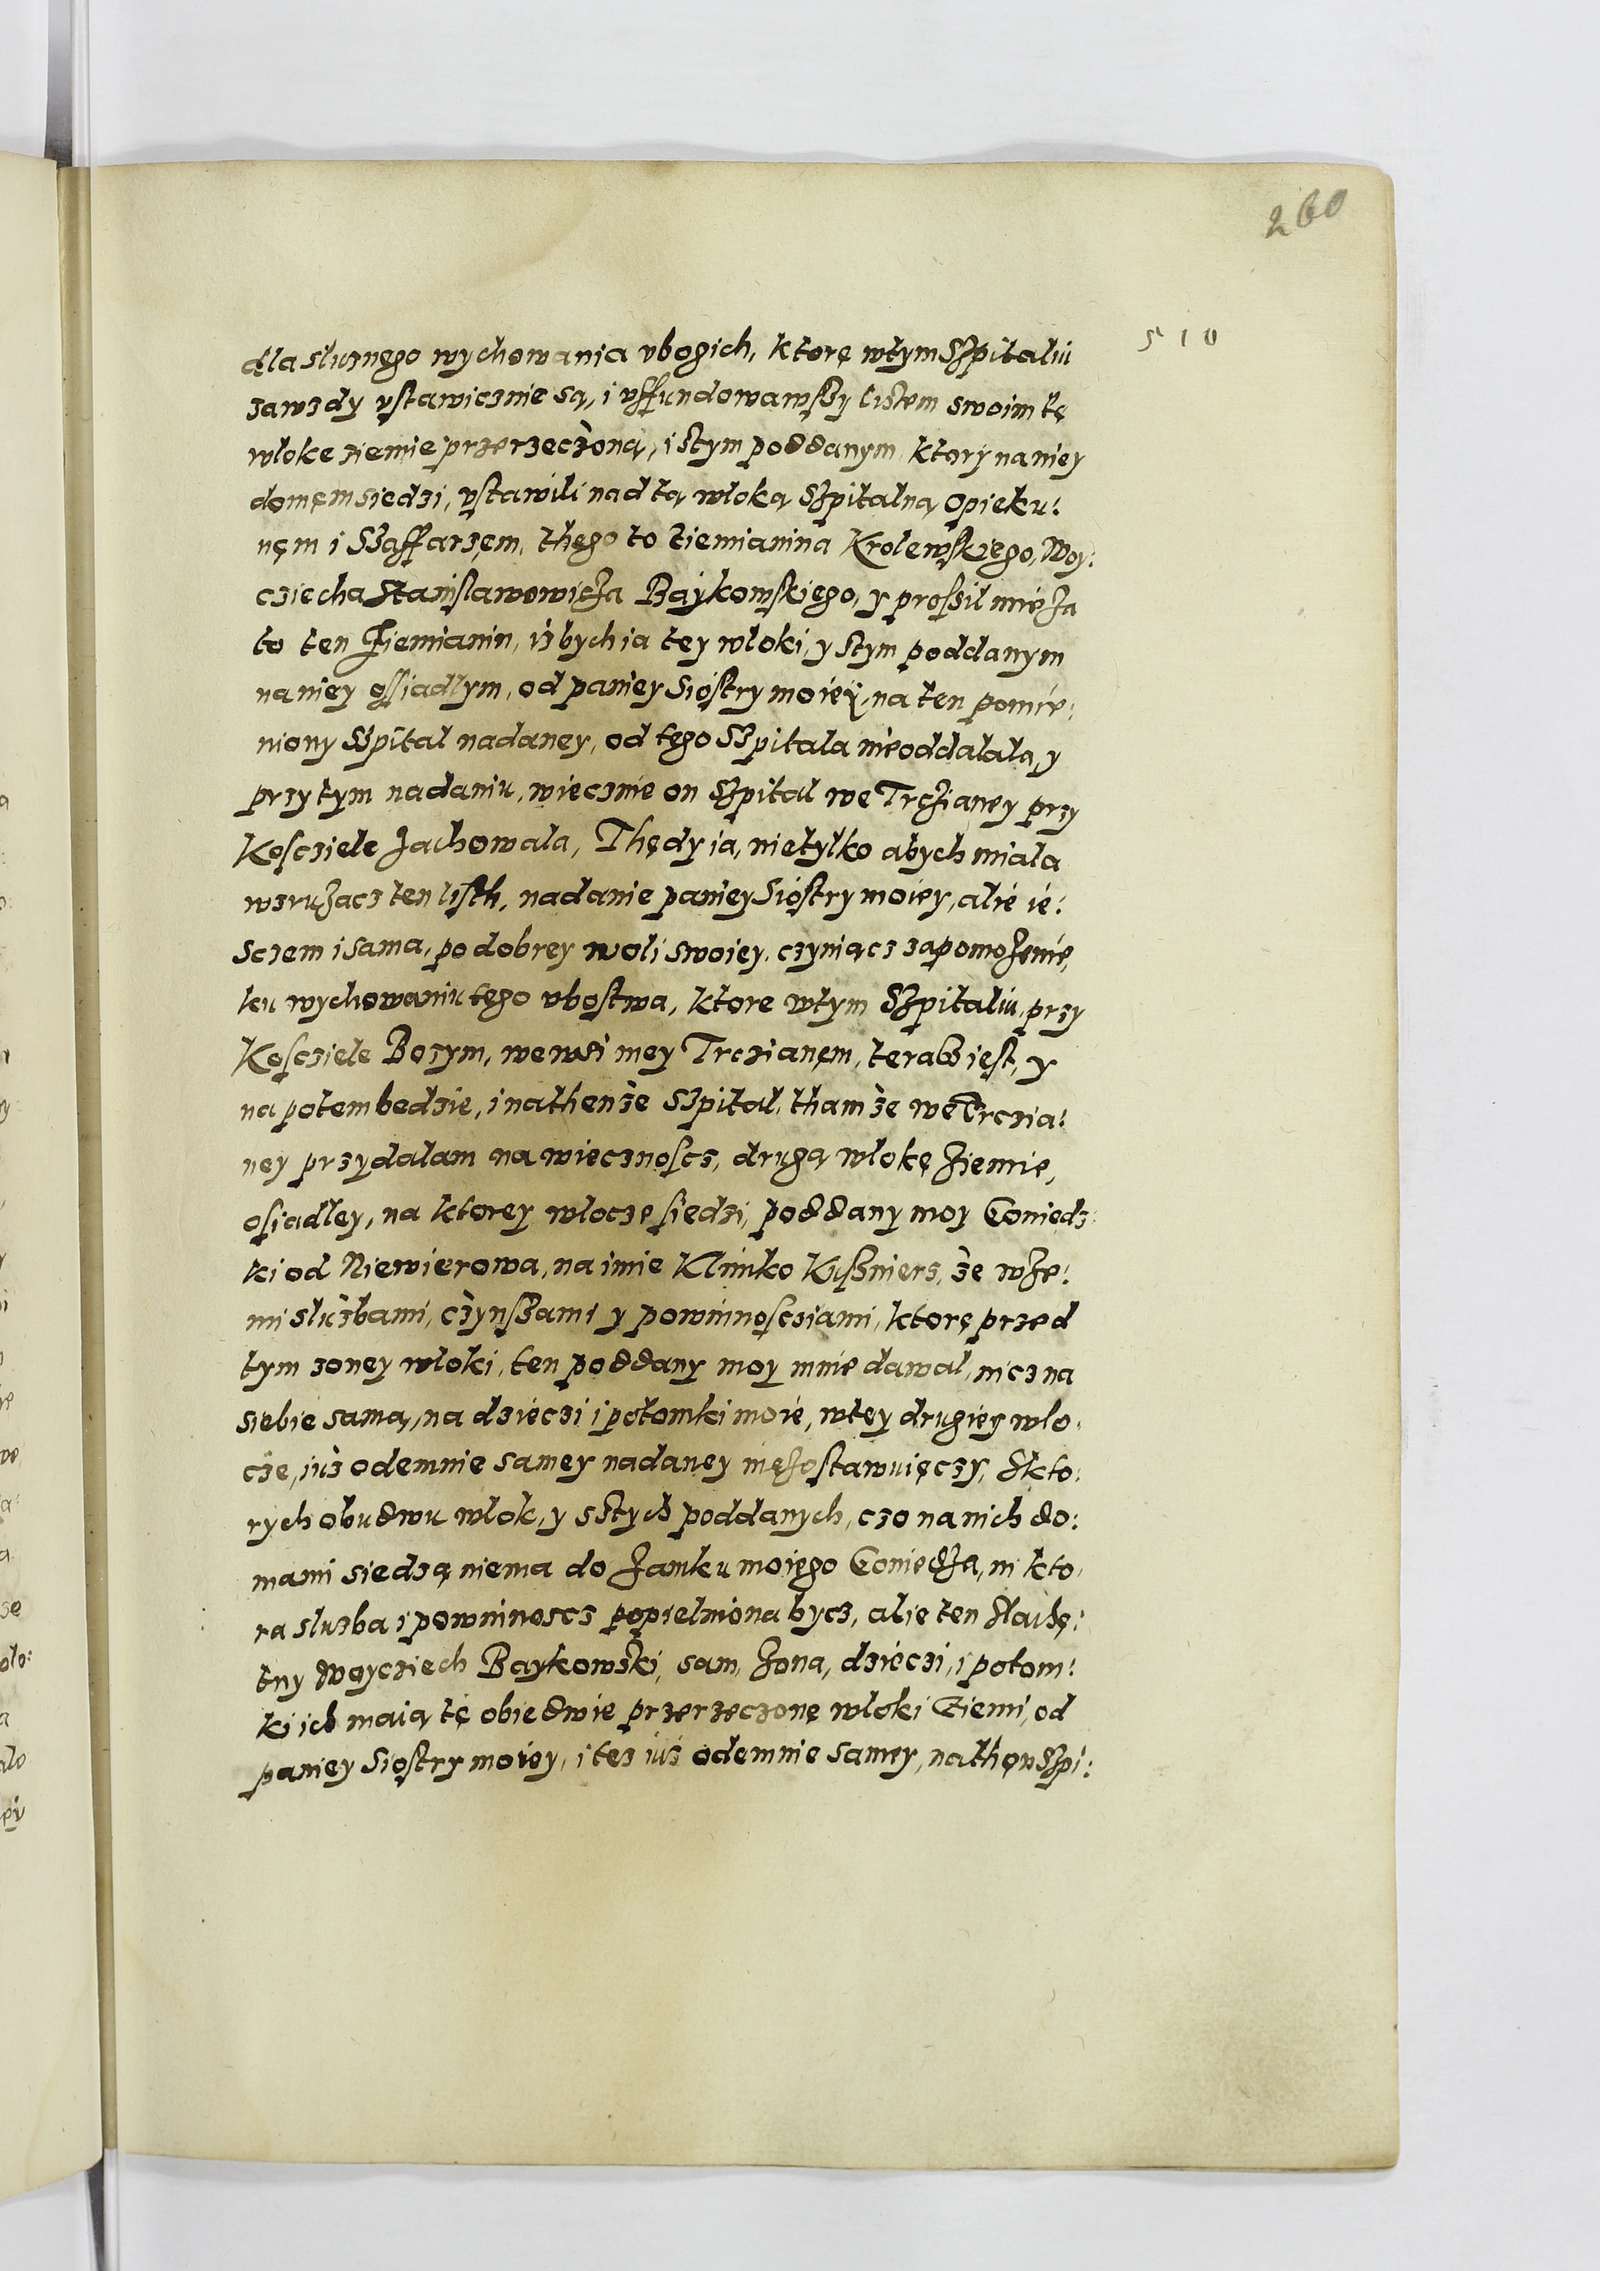 260
510
dla słuznego wychowania vbogich, ktorę wtym Szpitaliu
zawzdy vstawicznie są, i vffundowawszy listem swoim tę
włoke ziemie przerzeczoną, i stym poddanym ktory na niey
domęm siedzi, vstawili nad tą włoką Szpitalną Opieku:
nęm i Szaffarzęm, thęgo to Ziemianina Krolewskiego, Woy:
cziecha Stanisławowicza Baykowskięgo, y prossił mię za
to ten Ziemianin, iżbych ia tey włoki, y stym poddanym
na niey ossiadłym, od paniey Siostry moiey, na ten pomie:
niony Szpital nadaney, od tęgo Szpitala nieoddalala, y
przy tym nadaniu, wiecznie on Szpital we Trczianey przy
Kosciele zachowala, Thędy ia, nietylko abych miała
wzruzacz ten listh, nadanie paniey Siostry moiey, alie ie:
sczem i sama, po dobrey woli swoiey, czyniącz zapomożenie,
ku wychowaniu tęgo vbostwa, ktore wtym Szpitaliu, przy
Kosciele Bozym, we wsi mey Trczianęm, terasz iest, y
na potem bedzie, i na thenże Szpital, thamże we Trczia:
ney przydalam na wiecznoscz, drugą włokę ziemie,
osiadłey, na ktorey włocze siedzi, poddany moy Coniedz:
ki od Niewierowa, na imie Klimko Kuszmierz, że wsze:
mi służbami, czynszami y powinnoscziami, ktorę przed
tym z oney włoki, ten poddany moy mnie dawal, nicz na
siebie samą, na dzieczi i potomki moie, wtey drugiey wło:
cze, iuż odemnie samey nadaney nięzostawuięczy, Zkto:
rych obudwu włok, y s stych poddanych, czo na nich do:
mami siedzą niema do zamku moięgo Coniedza, ni kto:
ra sluzba i powinnoscz popielniona bycz, alie ten Szlache:
tny Woycziech Baykowski, sam, zona, dzieczi, i potom:
ki ich maią tę obiedwie przerzeczonę włoki Ziemi, od
paniey Siostry moiey, i tez iuż odemnie samey, na thęn Szpi: